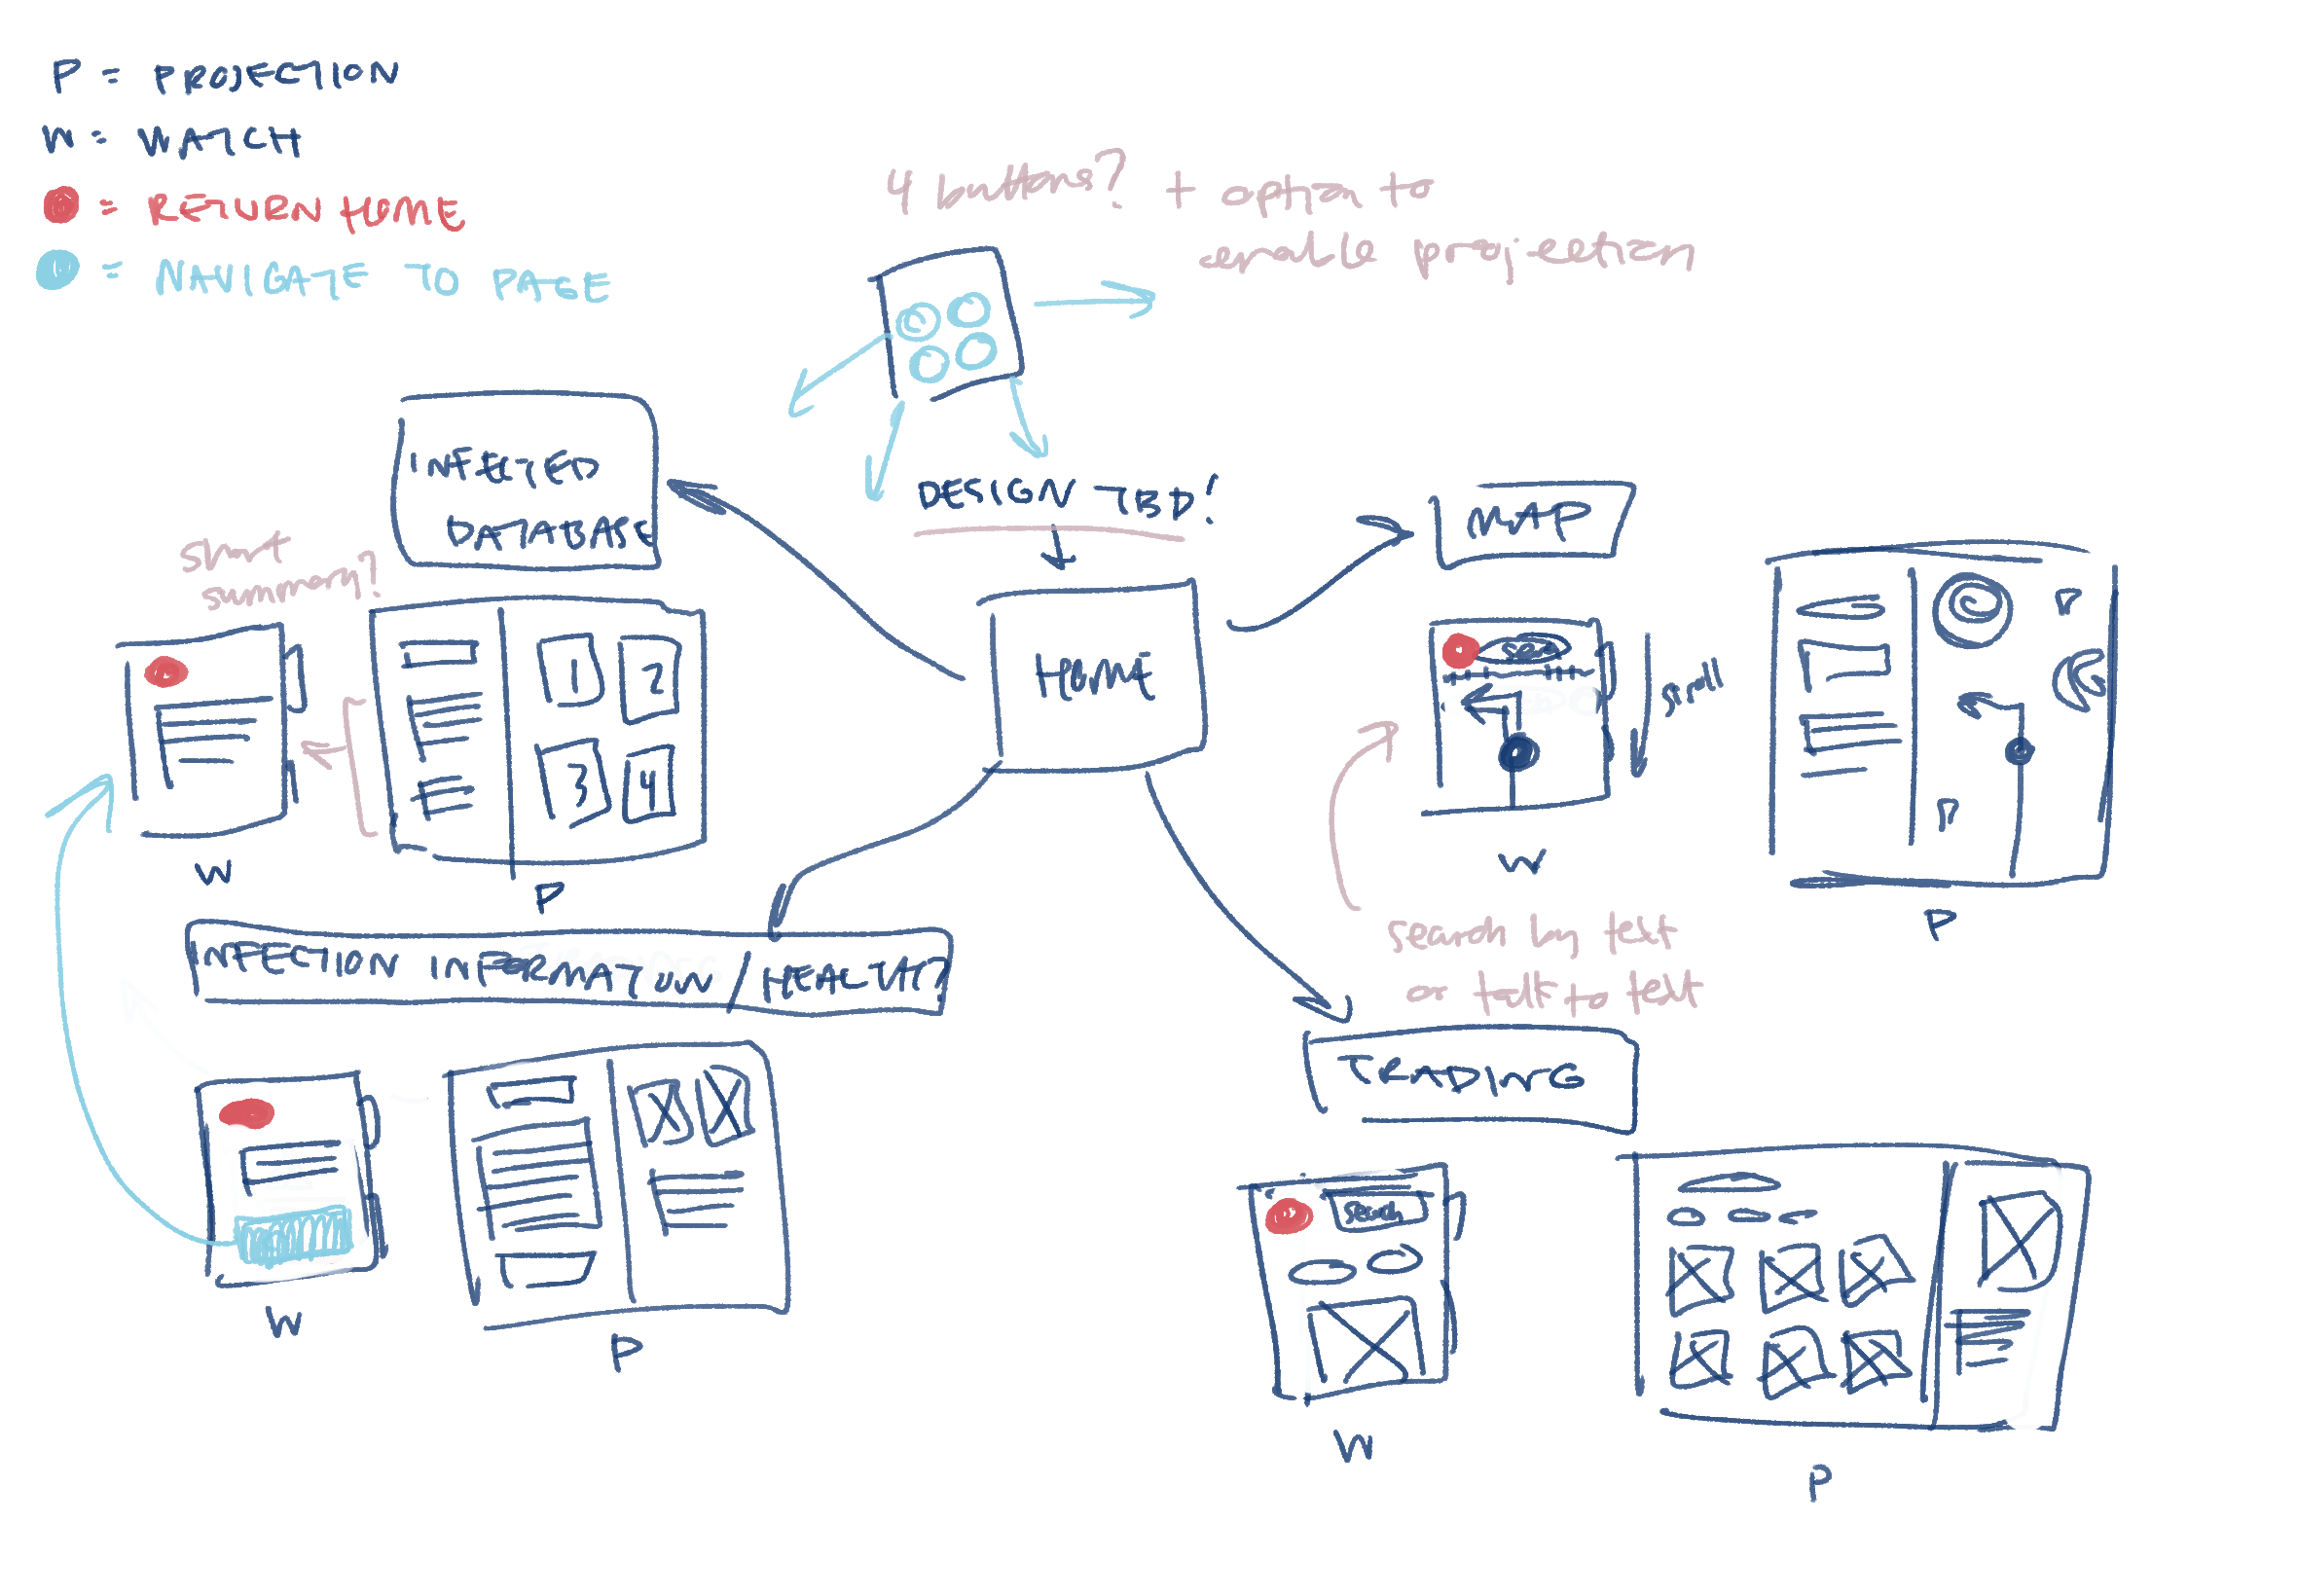 P = PROJECTION
W = WATCH
= RETURN HOME
= NAVIGATE TO PAGE
4 buttons? + option to
enable projection
DESIGN TBD!
INFECTED
DATABASE
short
summary?
1
2
3
4
W
P
HOME
MAP
scroll
W
P
search by text
or talk to text
INFECTION INFORMATION / HEALTH?
W
P
TRADING
search
W
P